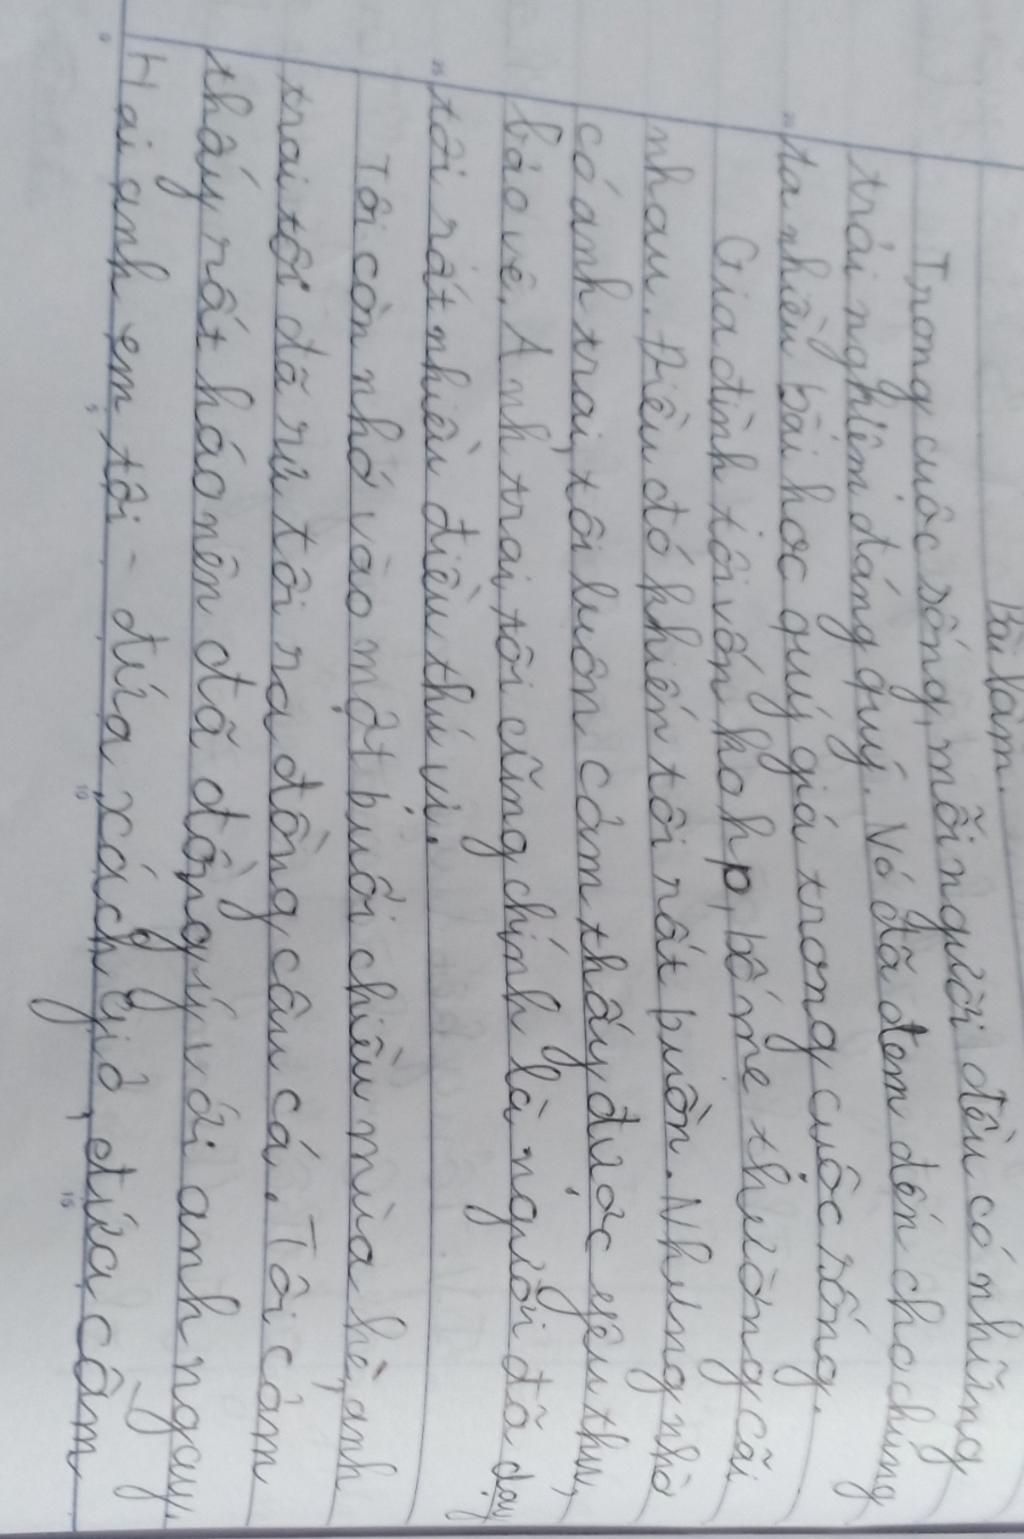 Bài làm.
Trong cuộc sống, mỗi người đều có những
trải nghiệm đáng quý. Nó đã đem đến cho chúng
ta nhiều bài học quý giá trong cuộc sống.
Gia đình tôi vốn hoà hợp, bố mẹ thường cãi
nhau. Điều đó khiến tôi rất buồn. Nhưng nhờ
có anh trai, tôi luôn cảm thấy được yêu thương,
bảo vệ. Anh trai tôi cũng chính là người đã dạy
tôi rất nhiều điều thú vị.
Tôi còn nhớ vào một buổi chiều mùa hè, anh
trai tôi đã rủ tôi ra đồng câu cá. Tôi cảm
thấy rất háo nên đã đồng ý với anh ngay.
Hai anh em tôi - đứa xách giỏ, đứa cầm